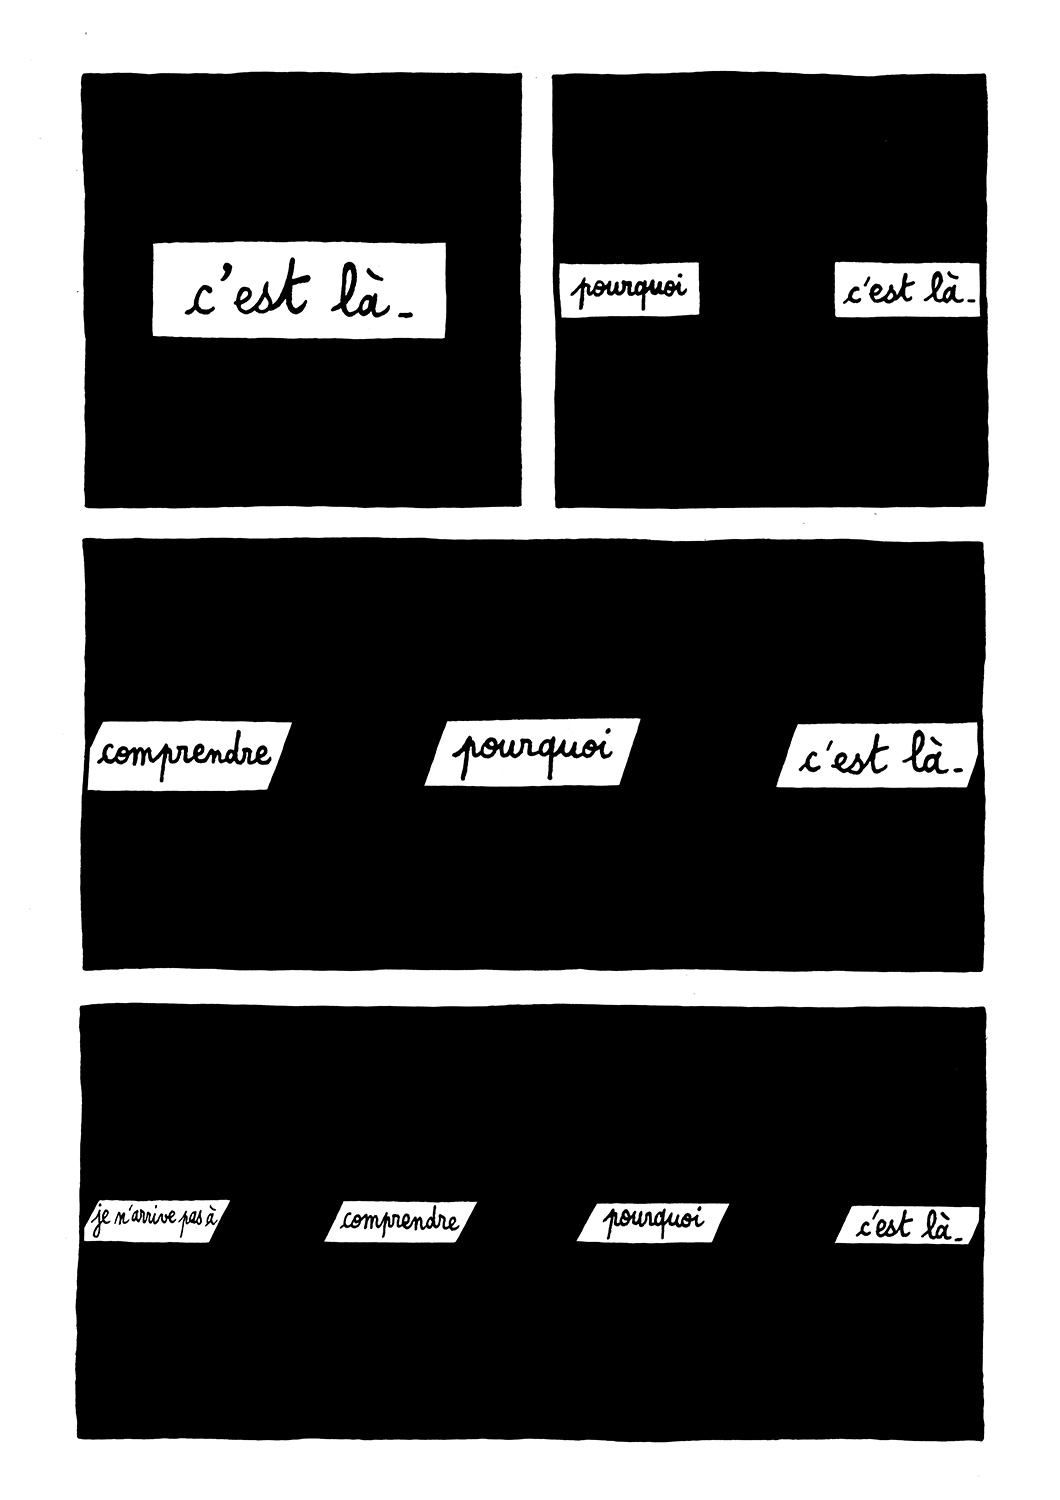 c'est là_
pourquoi c'est là_
comprendre pourquoi c'est là_
je n'arrive pas à comprendre pourquoi c'est là_